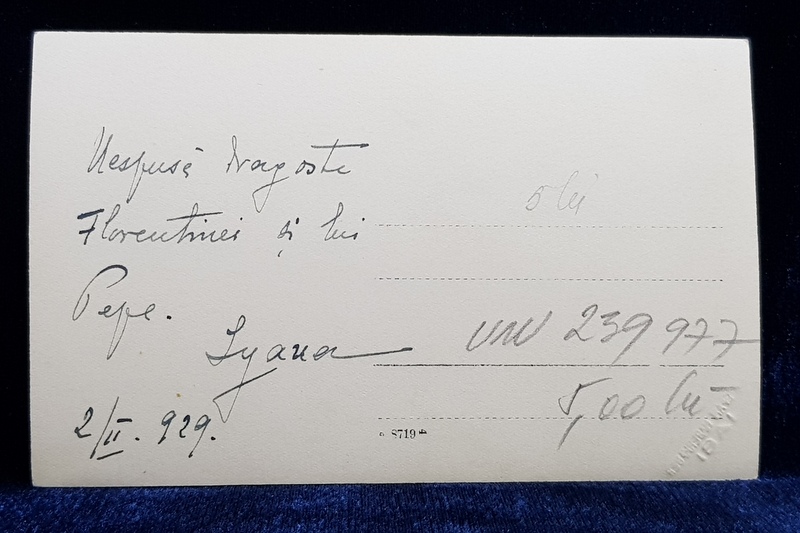 Nespusă dragoste
Florentinei și lui
Pepe.
Lyana
2/II. 929.
5 lei
239977
5,00 lei
8719